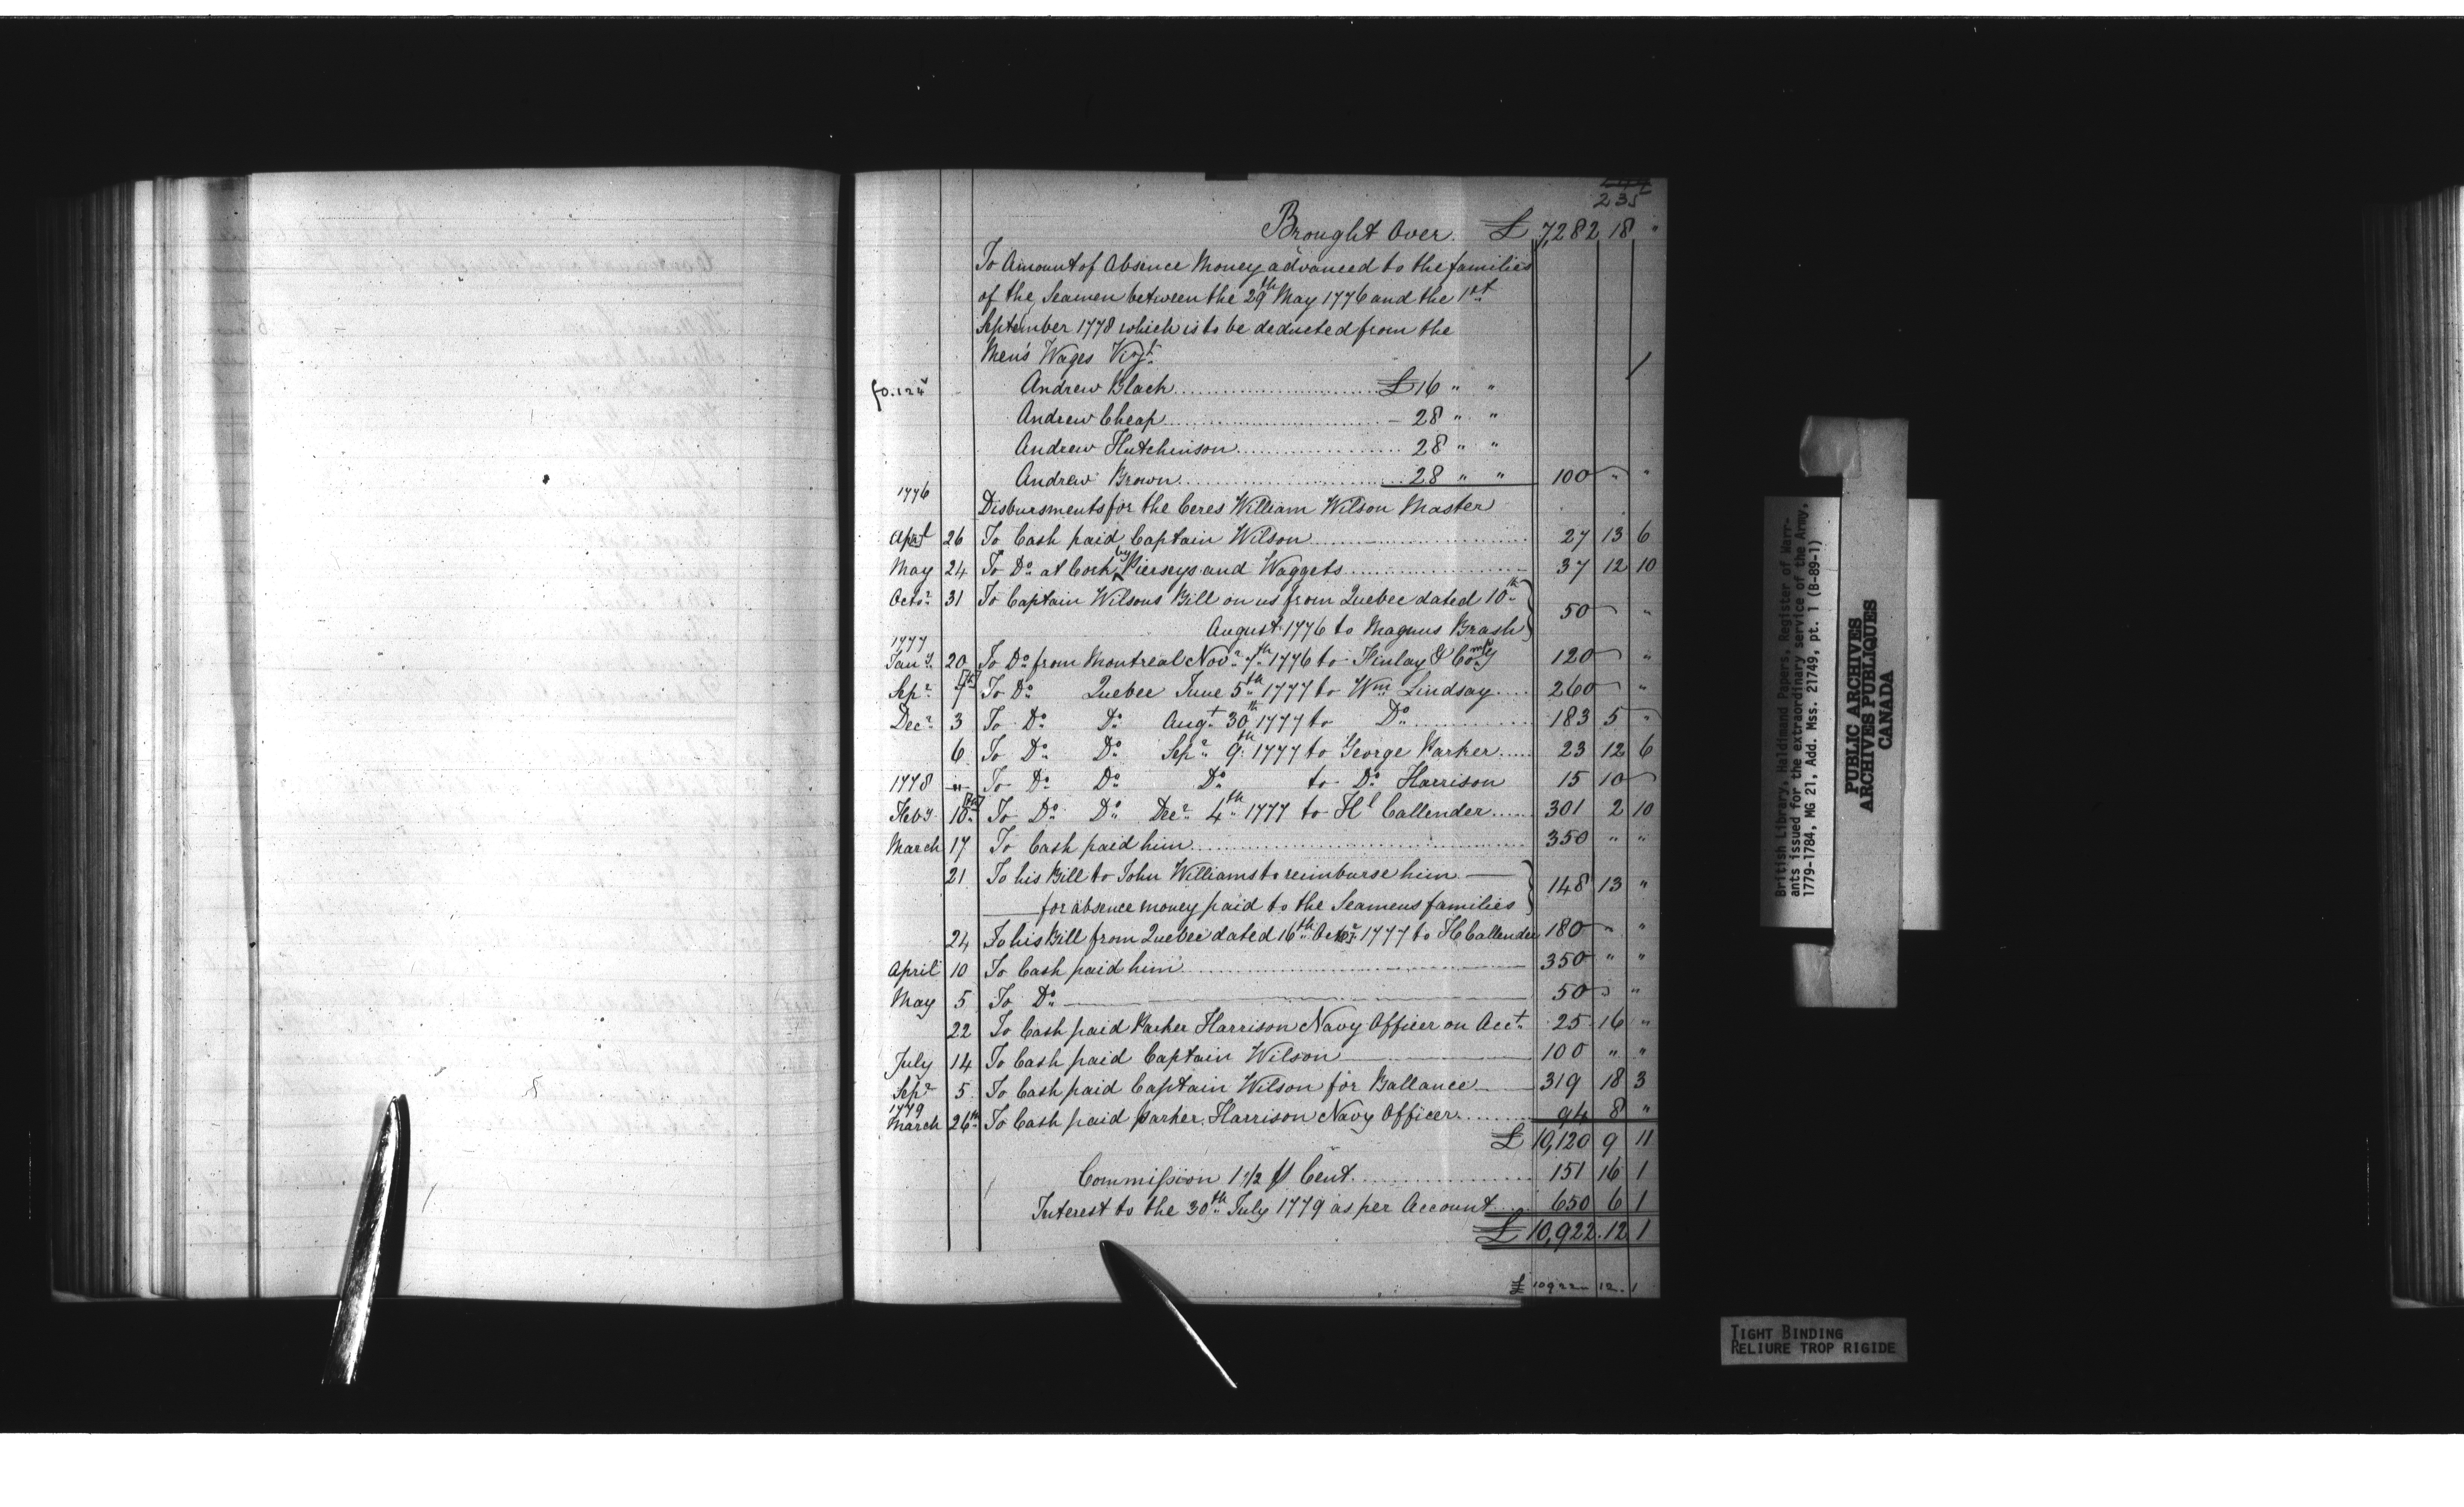 235
Brought Over £ 7,282 18 "
To Amount of Absence Money advanced to the families
of the Seamen between the 29th May 1776 and the 1st
September 1778 which is to be deducted from the
Men's Wages Vizt.
fo. 124v Andrew Black £16 " "
Andrew Cheap 28 " "
Andrew Hutchinson 28 " "
Andrew Brown 28 " " 100 " "
1776 Disbursments for the Ceres William Wilson Master
26 To Cash paid Captain Wilson 27 13 6
May 24 To Do at Cork by Pierseys and Waggets 37 12 10
Octor. 31 To Captain Wilsons Bill on us from Quebec dated 10th
August 1776 to Magnus Brash } 50 " "
1777
Jany. 20 To Do from Montreal Novr. 7th 1776 to Finlay & Compy 120 " "
Sepr. 7th To Do Quebec June 5th 1777 to Wm Lindsay 260 " "
Decr. 3 To Do Do Augt. 30th 1777 to Do 183 5 "
6 To Do Do Sepr. 9th 1777 to George Parker 23 12 6
1778 " To Do Do Do to Do Harrison 15 10
Feby. 10th To Do Do Decr. 4th 1777 to Hl Callender 301 2 10
March 17 To Cash paid him 350 " "
21 To his Bill to John Williams to reimburse him
for absence money paid to the Seamens families } 148 13 "
24 To his Bill from Quebec dated 16th Octor. 1777 to H Callender 180 " "
April 10 To Cash paid him 350 " "
May 5 To Do 50 "
22 To Cash paid Parker Harrison Navy Officer on Acct. 25 16 "
July 14 To Cash paid Captain Wilson 100 " "
Sepr. 5 To Cash paid Captain Wilson for Ballance 319 18 3
1779
March 26th To Cash paid Parker Harrison Navy Officer 94 8 "
£ 10,120 9 11
Commission 1 1/2 ⅌ Cent 151 16 1
Interest to the 30th July 1779 as per Account 650 6 1
£ 10,922 12 1
£ 10922 12 1
British Library, Haldimand Papers, Register of Warr-
ants issued for the extraordinary service of the Army,
1779-1784, MG 21, Add. Mss. 21749, pt. 1 (B-89-1)
PUBLIC ARCHIVES
ARCHIVES PUBLIQUES
CANADA
TIGHT BINDING
RELIURE TROP RIGIDE